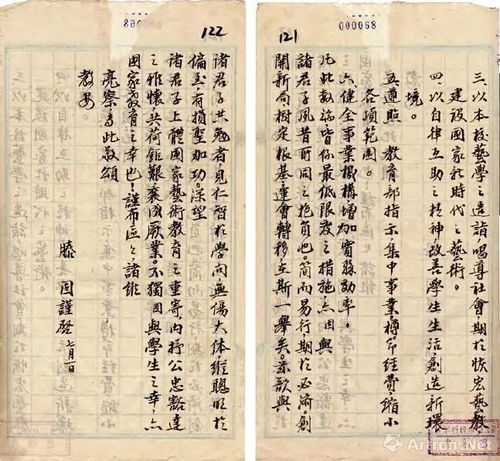 000068
121
三、以本校藝學之造詣唱導社會期於恢宏藝教
建設國家和時代之藝術。
四、以自律互助之精神改善學生生活創造新環
境。
五、遵照 教育部指示集中事業樽節經費縮小
各項範圍。
六、健全事業機構增加實際効率。
凡此數端皆係最低限度之措施亦固與
諸君子夙昔所同之抱負也。簡而易行期於必濟創
開新局樹定根基運會轉移在斯一舉矣。與
122
諸君子共勉者見仁智於學問無傷大体維聰明於
偏至有損聖功深望
諸君子上體國家藝術教育之重寄內抒公忠豁達
之雅懷共荷鉅艱奠國厥業不獨固與學生之幸亦
國家教育之幸也謹布區區諸維
亮察專此敬頌
教安
滕固謹啓 七月一日
Artron.Net